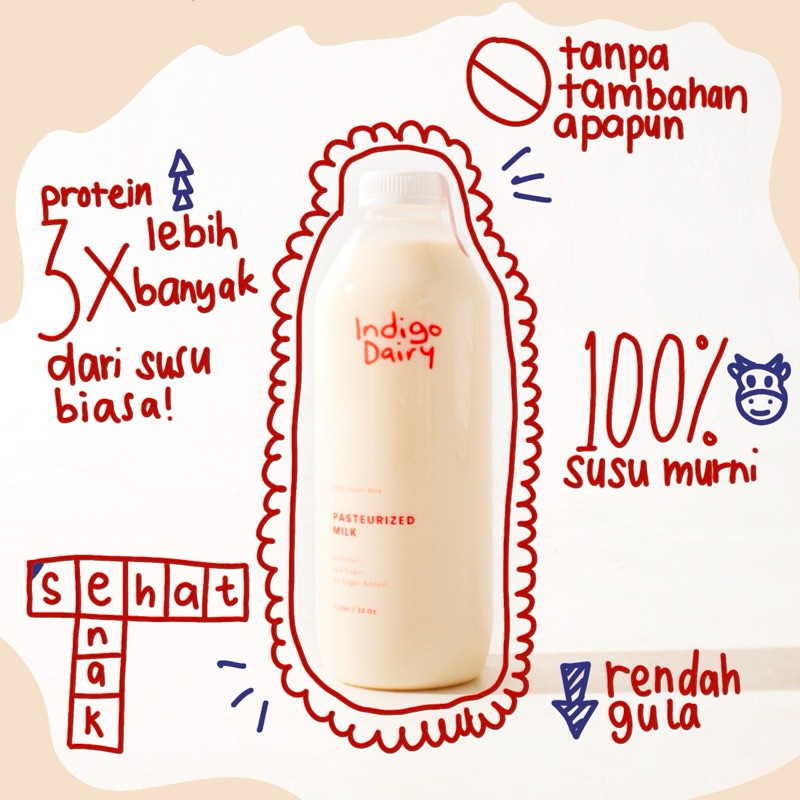 tanpa
tambahan
apapun
protein
3x lebih
banyak
dari susu
biasa!
Indigo
Dairy
100%
susu murni
PASTEURIZED
MILK
sehat
enak
rendah
gula